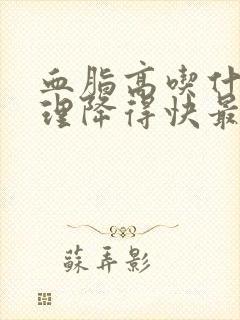 血脂高喫什
理降得快最
蘇弄影